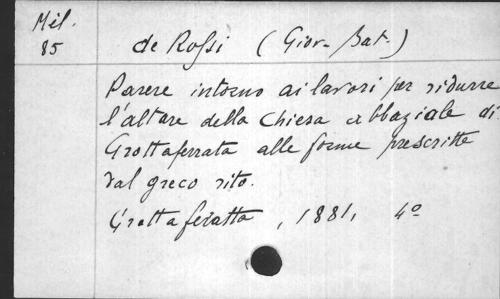 Mél.
85
de Rossi (Giov. Bat.)
Parere intorno ai lavori per ridurre
l'altare della Chiesa abbaziale di
Grottaferrata alle forme prescritte
dal greco rito.
Grottaferatta, 1881, 4º